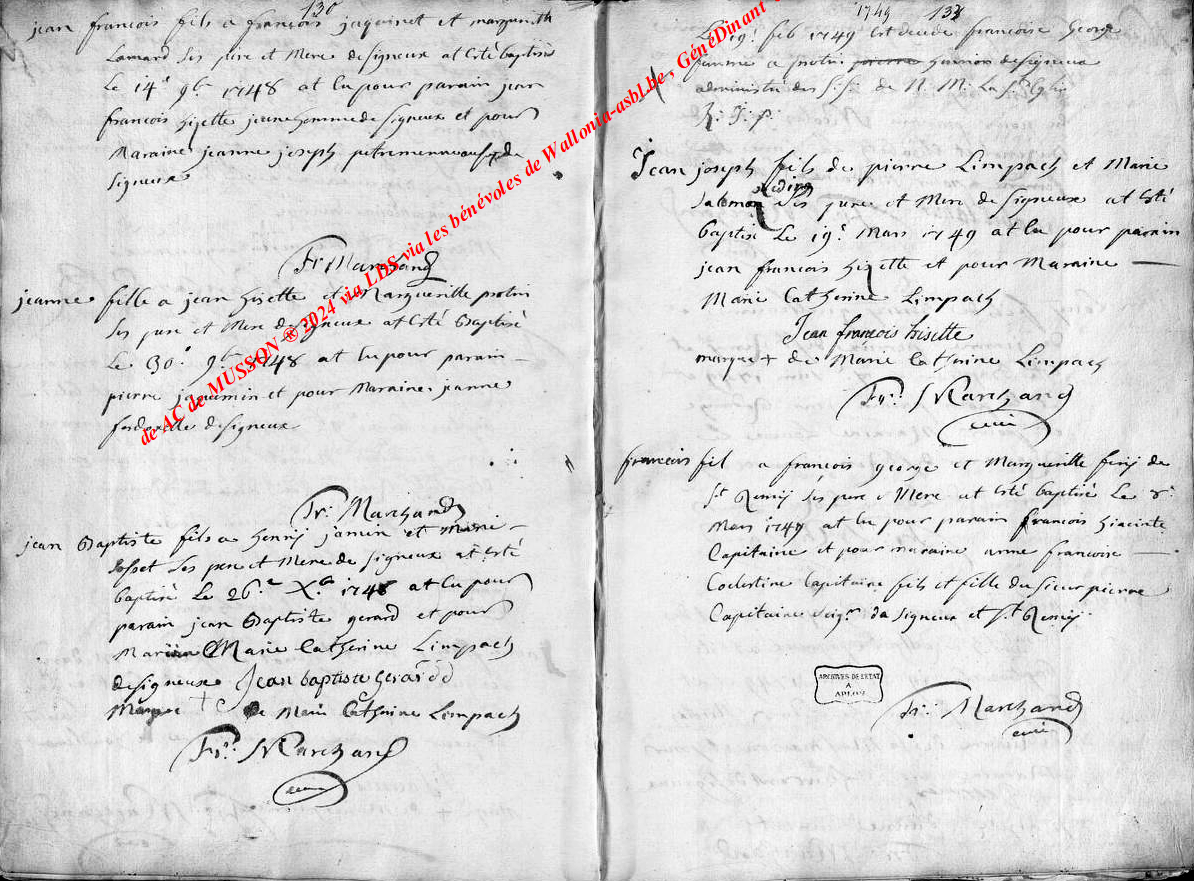 130
jean francois fils a francois jaquinet et marguerith
Lamard Ses pere et Mere de signeux at Esté baptise
Le 14e 9bre 1748 at lu pour parain jean
francois hizette jeune homme de signeux et pour
Maraine jeanne joseph de
Signeux
Fr: Marchand
jeanne fille a jean hisette et Margueritte protin
Ses pere et Mere de signeux at Esté Baptisé
Le 30e 9bre 1748 at lu pour parain
pierre jaquemin et pour Maraine jeanne
de signeux
Fr: Marchand
jean Baptiste fils a henry janin et Marie
Josset Ses pere et Mere de signeux at Esté
baptisé Le 26e Xbre 1748 at lu pour
parain jean Baptiste gerard et pour
Marie Catherine Limpach
de signeux Jean baptiste Gerard
Marque + de Marie Catherine Limpach
Fr: Marchand
curé
1749 131
Le 19e feb 1749 Est decede francoise George
femme a protin de signeux
administré des de N. M. La Ste Eglise
R. I. P.
Jean joseph fils de pierre Limpach et Marie
Salomon Ses pere et Mere de signeux at Esté
baptisé Le 19e Mars 1749 at lu pour parain
jean francois hizette et pour Maraine
Marie Catherine Limpach
Jean francois hisette
marque + de Marie Catherine Limpach
Fr: Marchand
curé
francois fil a francois george et Margueritte de
St Remij Ses pere et Mere at Esté baptisé Le 8e
Mars 1749 at lu pour parain francois hiacinte
Capitaine et pour maraine anne francoise
Coelestine Capitaine fils et fille du Sieur pierre
Capitaine Seigr de Signeux et St Remij
ARCHIVES DE L'ETAT
A
ARLON
Fr: Marchand
curé
de AC de MUSSON ® 2024 via LDS via les bénévoles de Wallonia-asbl.be , GénéDinant